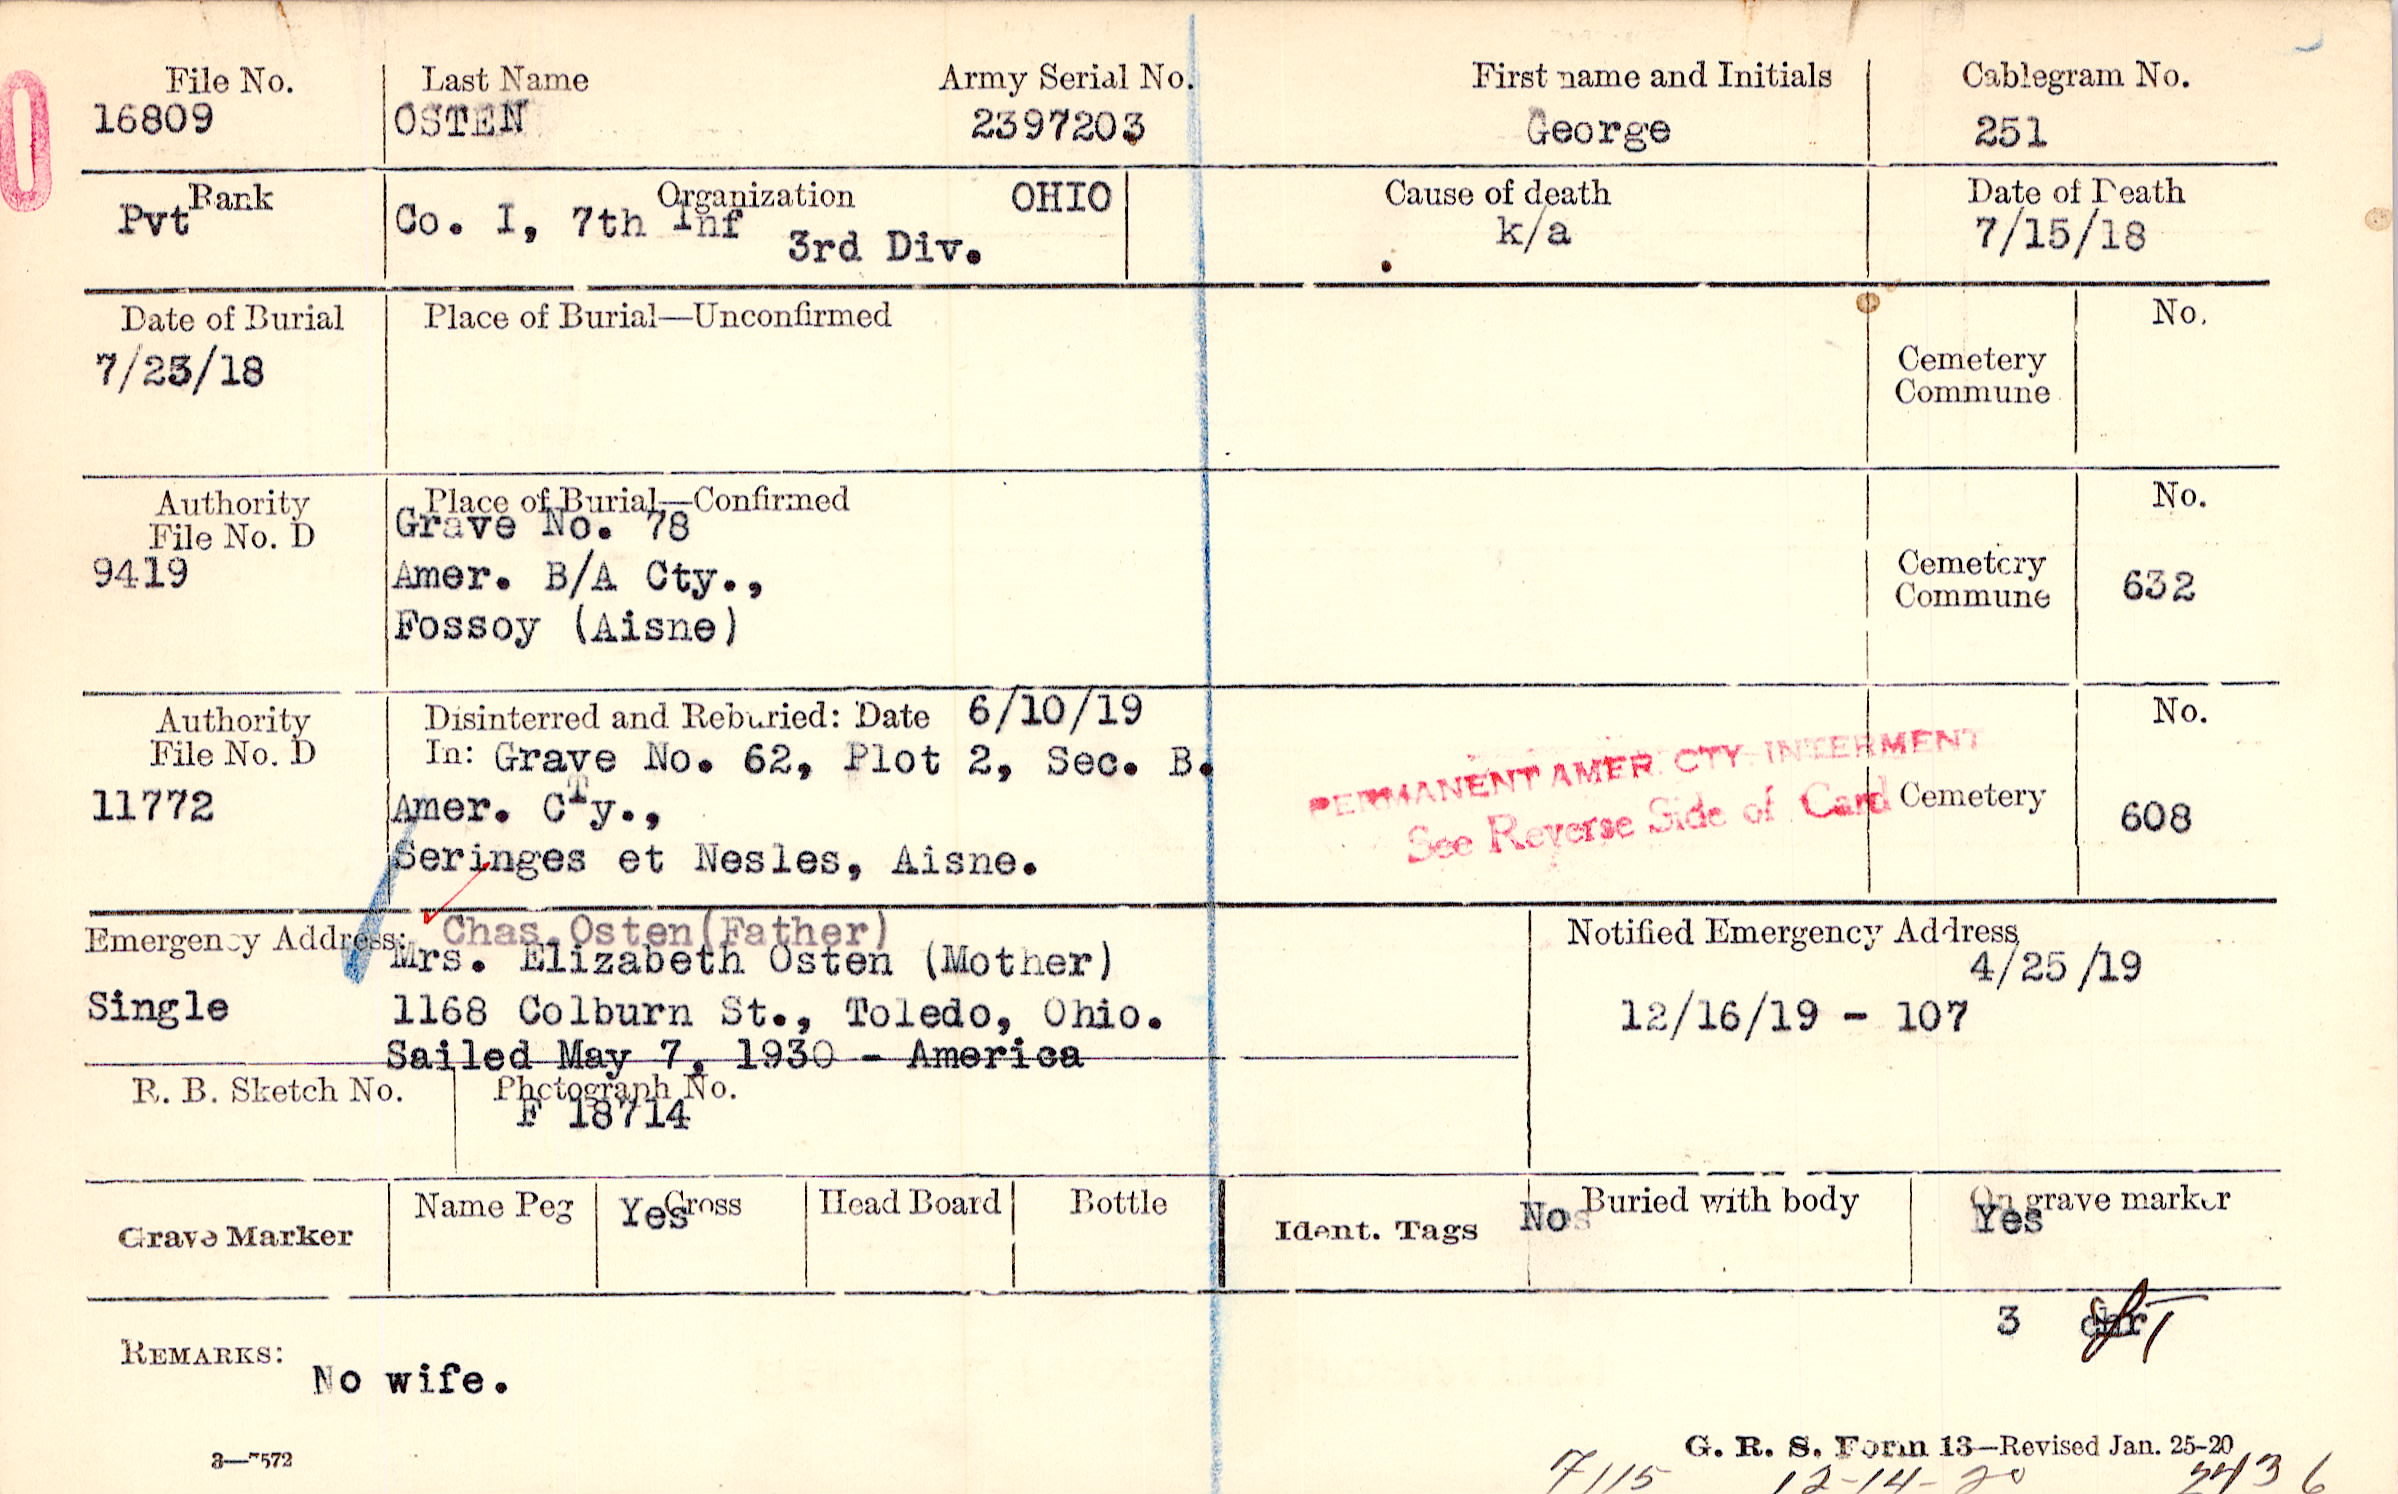 File No. Last Name Army Serial No. First name and Initials Cablegram No.
16809 OSTEN 2397203 George 251
Rank Organization OHIO Cause of death Date of Death
Pvt Co. I, 7th Inf k/a 7/15/18
3rd Div.
Date of Burial Place of Burial—Unconfirmed No.
7/23/18 Cemetery
Commune
Authority Place of Burial—Confirmed No.
File No. D Grave No. 78
9419 Amer. B/A Cty., Cemetery
Commune 632
Fossoy (Aisne)
Authority Disinterred and Reburied: Date 6/10/19 No.
File No. D In: Grave No. 62, Plot 2, Sec. B.
PERMANENT AMER. CTY. INTERMENT
See Reverse Side of Card
11772 Amer. CTy., Cemetery 608
Seringes et Nesles, Aisne.
Emergency Address: Chas. Osten (Father) Notified Emergency Address
Mrs. Elizabeth Osten (Mother) 4/25/19
Single 1168 Colburn St., Toledo, Ohio. 12/16/19 - 107
Sailed May 7, 1930 - America
R. B. Sketch No. Photograph No.
F 18714
Grave Marker Name Peg Yes Cross Head Board Bottle Ident. Tags No Buried with body On grave marker
Yes
3
REMARKS:
No wife.
3—7572 G. R. S. Form 13—Revised Jan. 25-20
7/15 12-14-20 2436